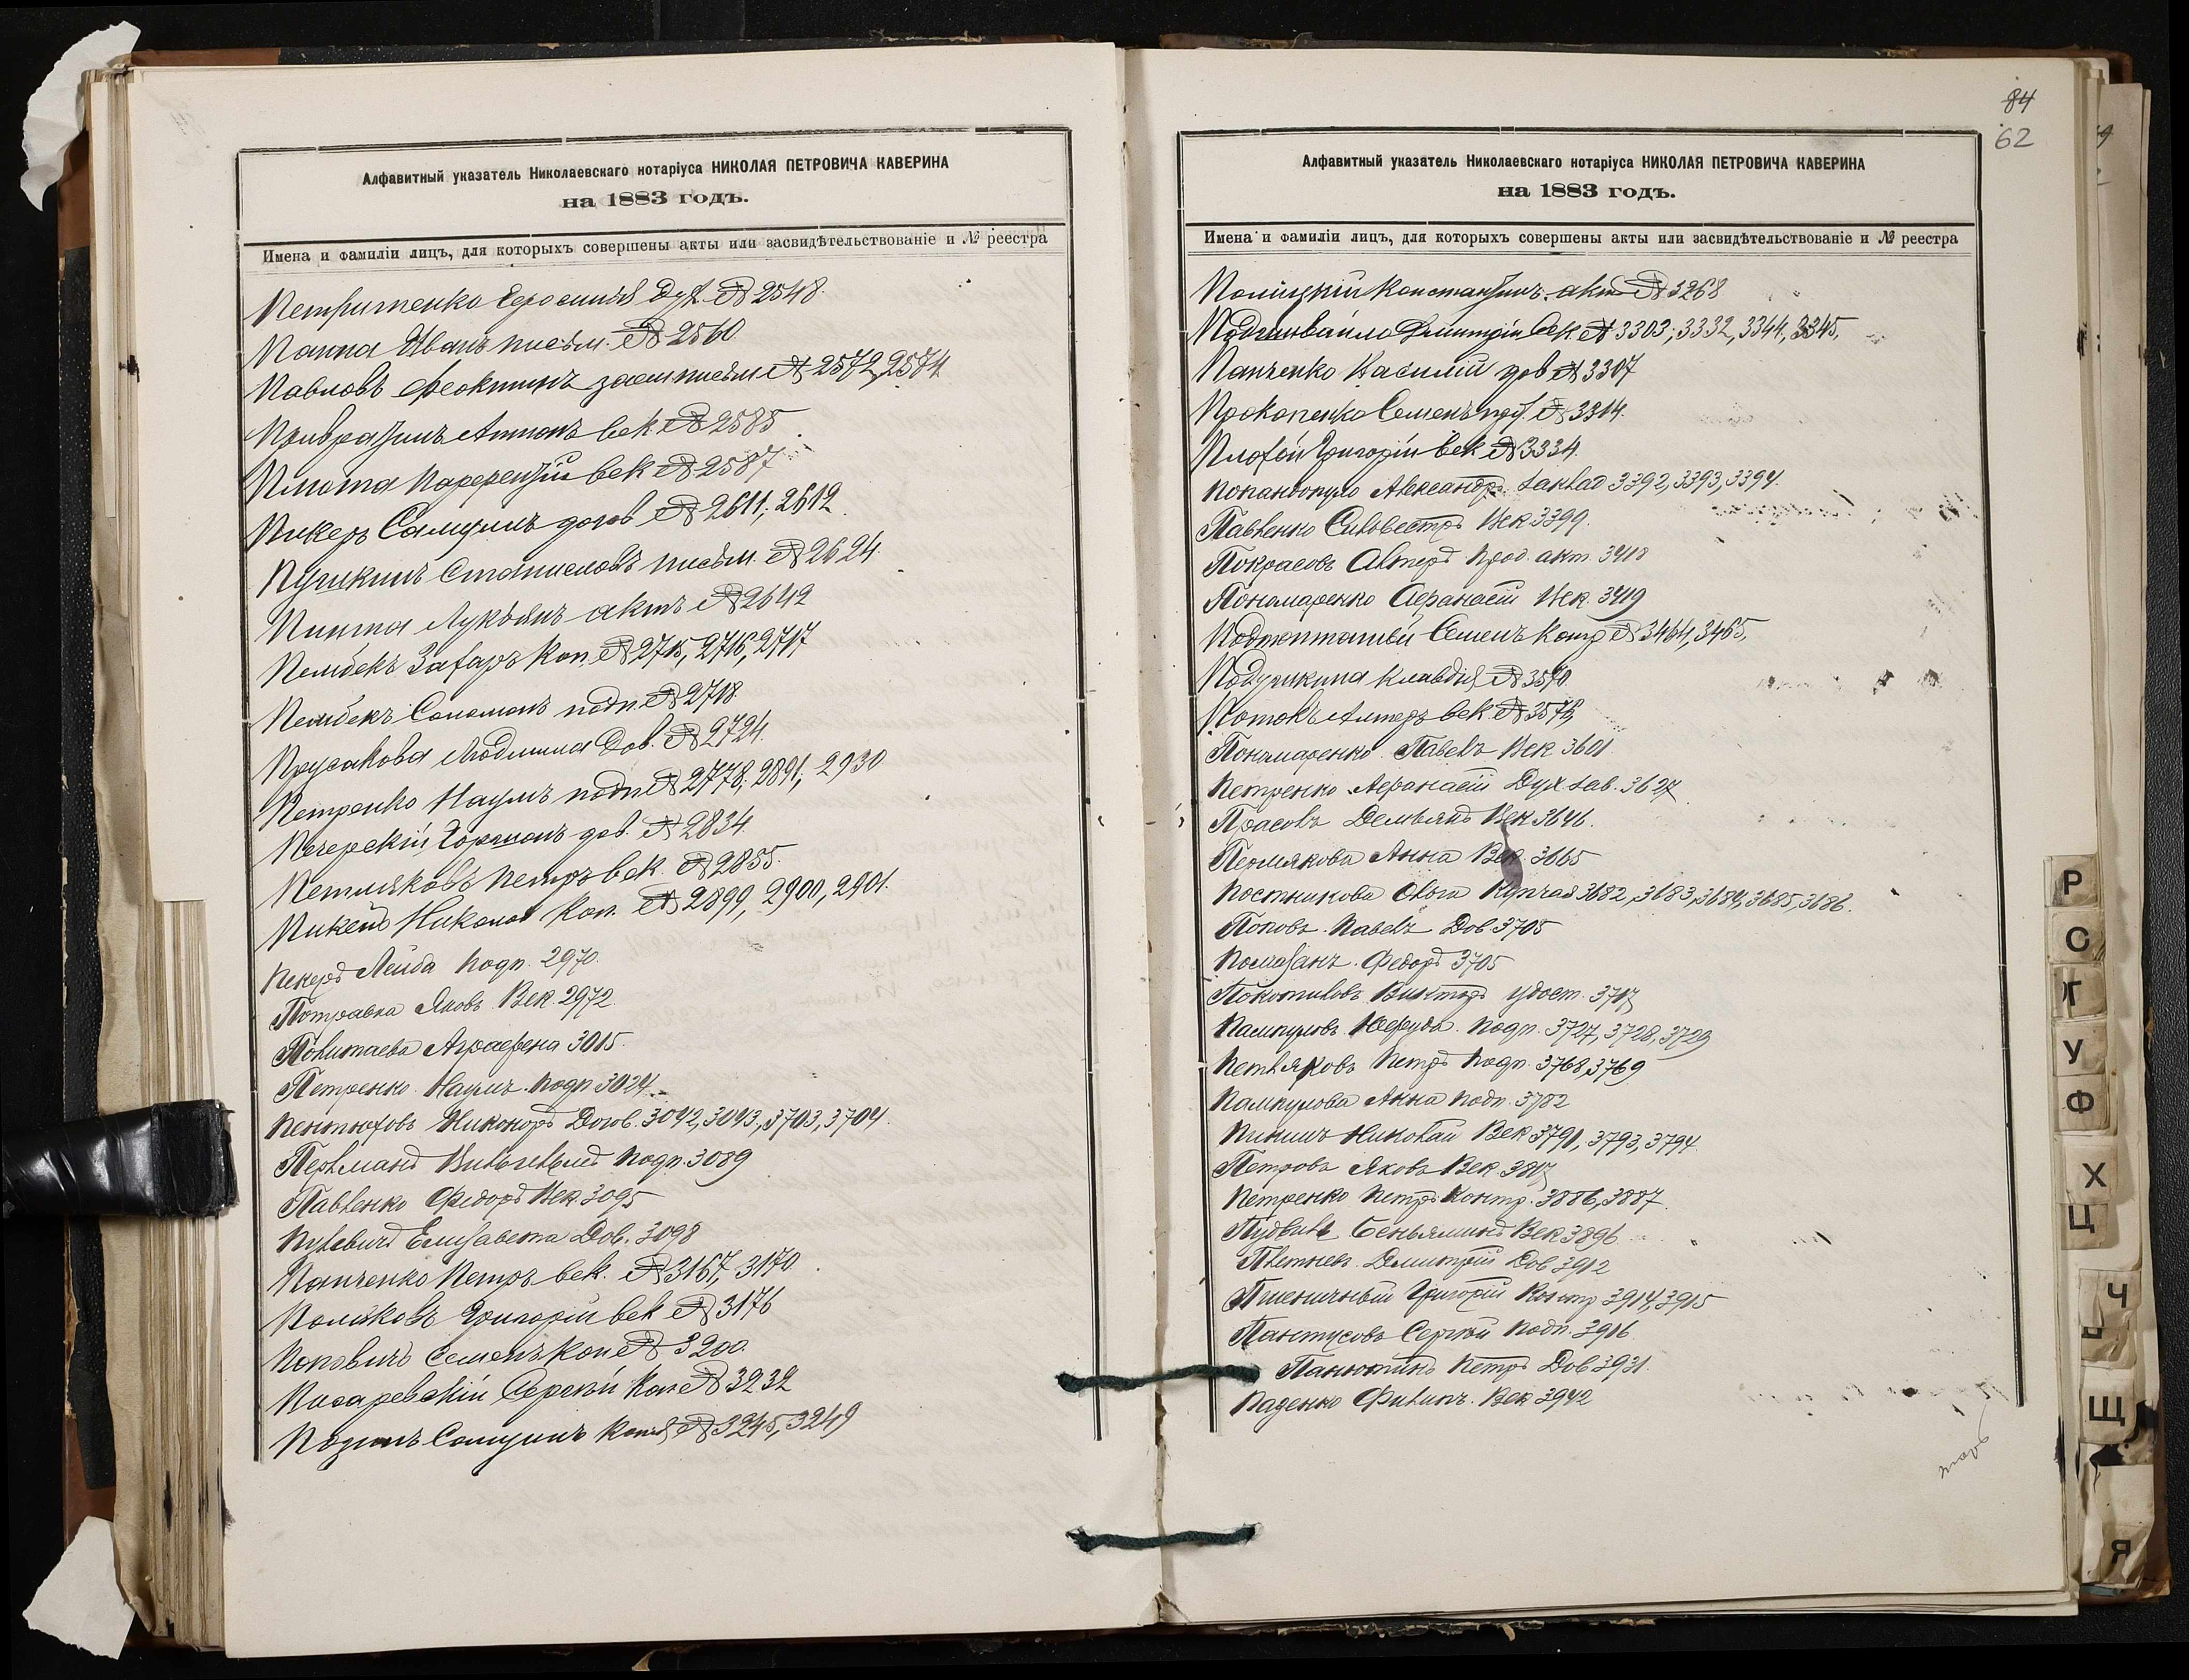 Алфавитный указатель Николаевскаго нотаріуса НИКОЛАЯ ПЕТРОВИЧА КАВЕРИНА
на 1883 годъ.
Имена и фамиліи лицъ, для которыхъ совершены акты или засвидѣтельствованіе и № реестра
Петриченко Ефросинія дух. № 2548
Паппа Иванъ письм. № 2560
Павловъ Феоктистъ заем письм № 2572, 2574
Антонъ век № 2585
Плюта век № 2587
Пикеръ Самуилъ догов № 2611, 2612
Пушкинъ Станиславъ письм. № 2624
Лукьянъ актъ № 2642
Пембекъ Захаръ коп. № 2715, 2716, 2717
Пембекъ Соломонъ подп. № 2718
Прусакова Людмила Дов. № 2724
Петренко Наумъ подп № 2778, 2891, 2930
Печерскій дов. № 2834
Петляковъ Петръ век. № 2855
Николай Коп. № 2899, 2900, 2901.
Пекеръ Лейба подп. 2970
Потравка Яковъ Век. 2972
Аграфена 3015
Петренко Наумъ подп 3024
Пентюховъ Никоноръ Догов. 3042, 3043, 3703, 3704
Перлманъ подп. 3089
Павленко Федоръ Век. 3095
Пулевичъ Елизавета Дов. 3098
Панченко Петръ век. № 3167, 3170
Поляковъ Григорій век № 3176
Поповичъ Семенъ коп № 3200
Писаревскій Сергѣй Коп № 3232
Самуилъ копія № 3245, 3249
84
62
Алфавитный указатель Николаевскаго нотаріуса НИКОЛАЯ ПЕТРОВИЧА КАВЕРИНА
на 1883 годъ.
Имена и фамиліи лицъ, для которыхъ совершены акты или засвидѣтельствованіе и № реестра
Константинъ акт № 3268
Дмитрій Век. № 3303, 3332, 3344, 3345,
Панченко Василій дов № 3307
Прокопенко Семенъ № 3314
Григорій век № 3334
Попандопуло Александръ заклад 3392, 3393, 3394
Павленко Сильвестръ Век 3399
Покрасовъ Алтеръ Прод. акт. 3418
Пономаренко Афанасій Век. 3419
Семенъ контр № 3464, 3465,
Подушкина Клавдія № 3570
Потокъ Алтеръ век № 3578
Пономаренко Павелъ Век 3601
Петренко Афанасій Дух зав. 3627
Прасолъ Демьянъ Век 3646
Пермякова Анна Век. 3665
Постникова Ольга Купчая 3682, 3683, 3684, 3685, 3686.
Поповъ Павелъ Дов 3705
Помазанъ Федоръ 3705
Покотиловъ Викторъ удост. 3717
Пампуловъ Подп. 3727, 3728, 3729
Петляковъ Петръ подп. 3768, 3769
Пампулова Анна подп. 3782
Николай Век 3791, 3793, 3794
Петровъ Яковъ Век 3817
Петренко Петръ Контр. 3886, 3887
Беньяминъ Век 3896
Плетневъ Дмитрій Дов 3912
Пшеничный Григорій Контр 3914, 3915
Пантусовъ Сергѣй подп. 3916
Панютинъ Петръ Дов 3931
Паденко Филипъ Век 3942
Р
С
Т
У
Ф
Х
Ц
Ч
Щ
Я